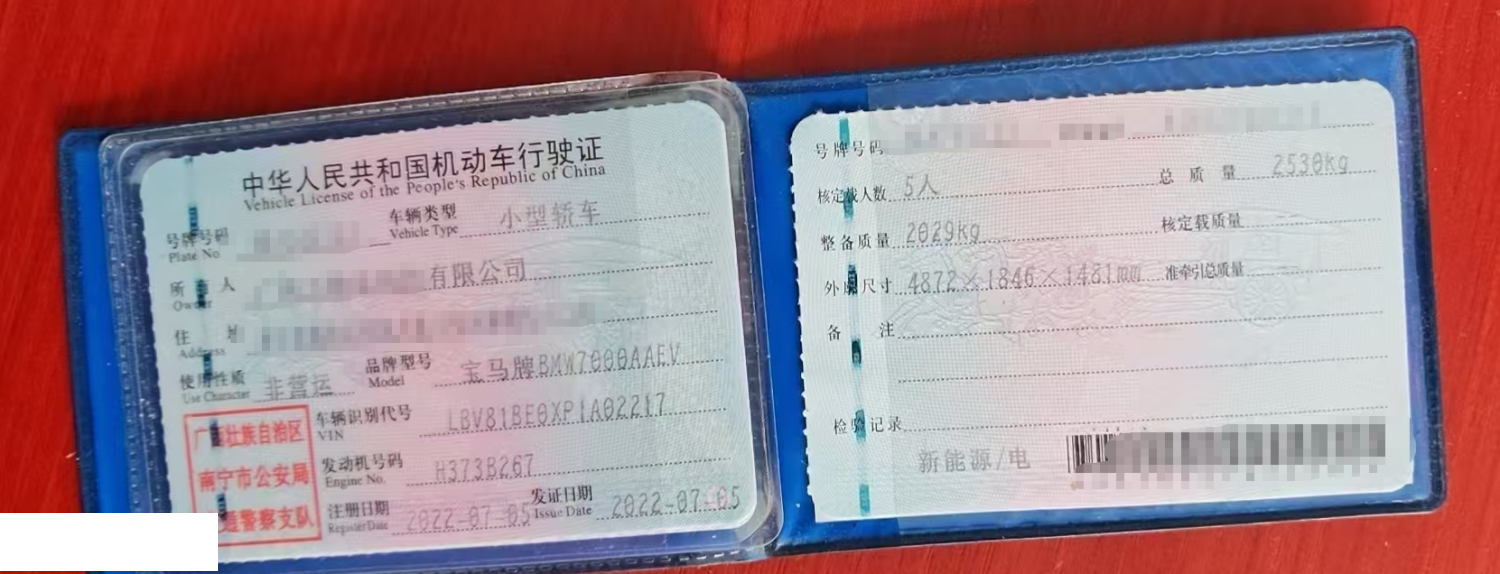 中华人民共和国机动车行驶证
Vehicle License of the People's Republic of China
号牌号码
Plate No
车辆类型
Vehicle Type
小型轿车
所有人
Owner
有限公司
住 址
Address
使用性质
Use Character
非营运
品牌型号
Model
宝马牌BMW7000AAEV
广西壮族自治区
南宁市公安局
交通警察支队
车辆识别代号
VIN
LBV81BE0XP1A02217
发动机号码
Engine No.
H373B267
注册日期
Register Date
2022-07-05
发证日期
Issue Date
2022-07-05
号牌号码
核定载人数 5人
总质量 2530kg
整备质量 2029kg
核定载质量
外廓尺寸 4872×1846×1481mm
准牵引总质量
备 注
检验记录
新能源/电